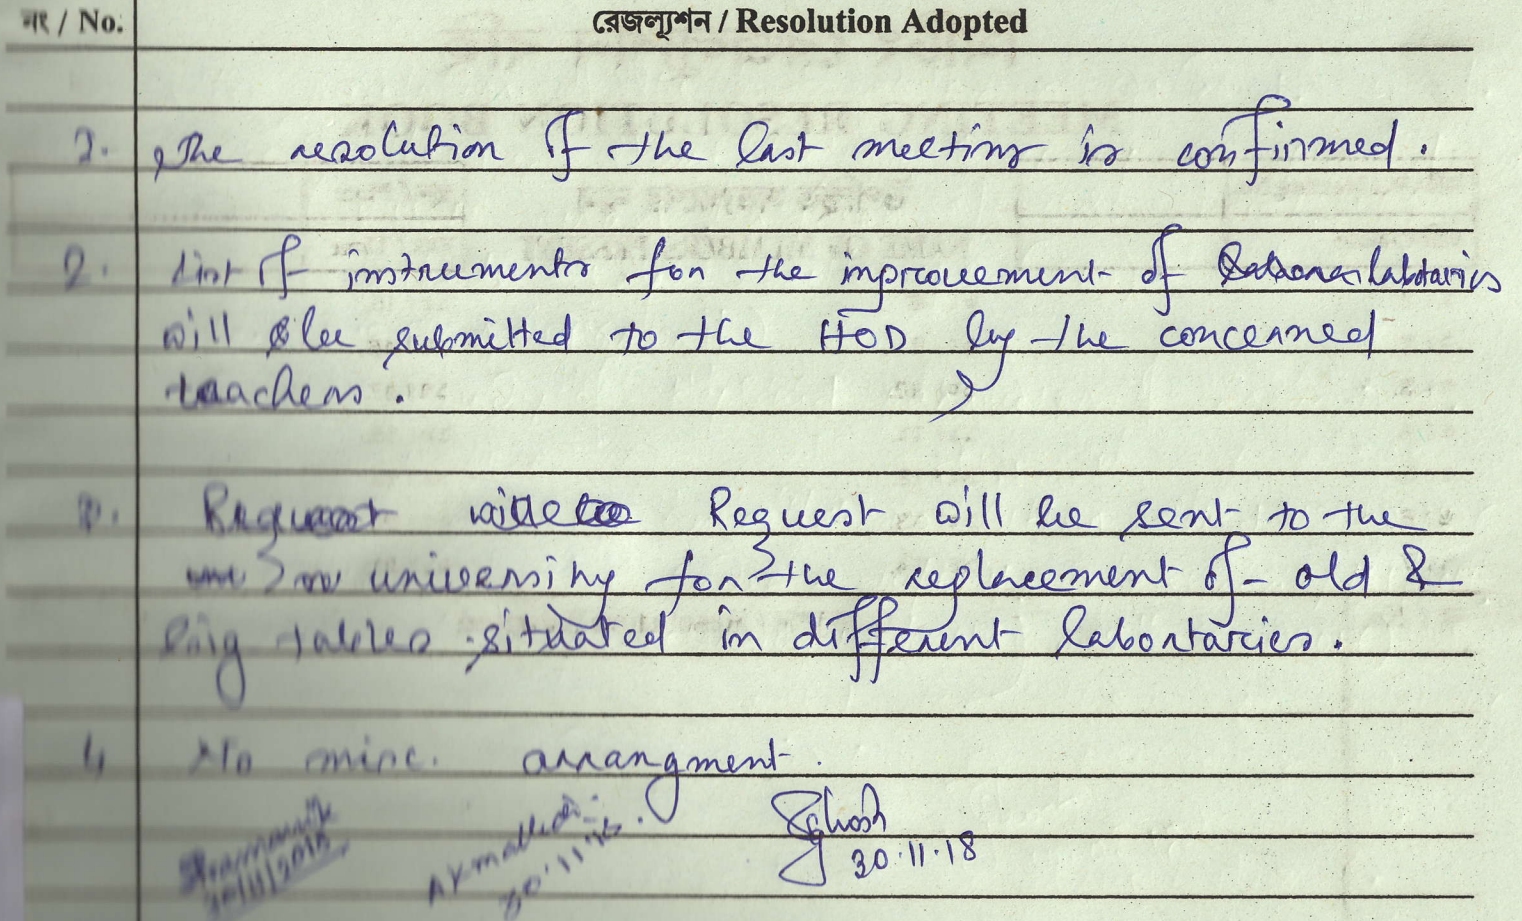 নং / No. রেজল্যূশন / Resolution Adopted
1. The resolution of the last meeting is confirmed.
2. List of instruments for the improvement of labotaries
will be submitted to the HOD by the concerned
teachers.
3. Request will be sent to the
university for the replacement of old &
big tables situated in different labortaries.
4 No misc. arrangment.
SGhosh
30.11.18
30/11/2018